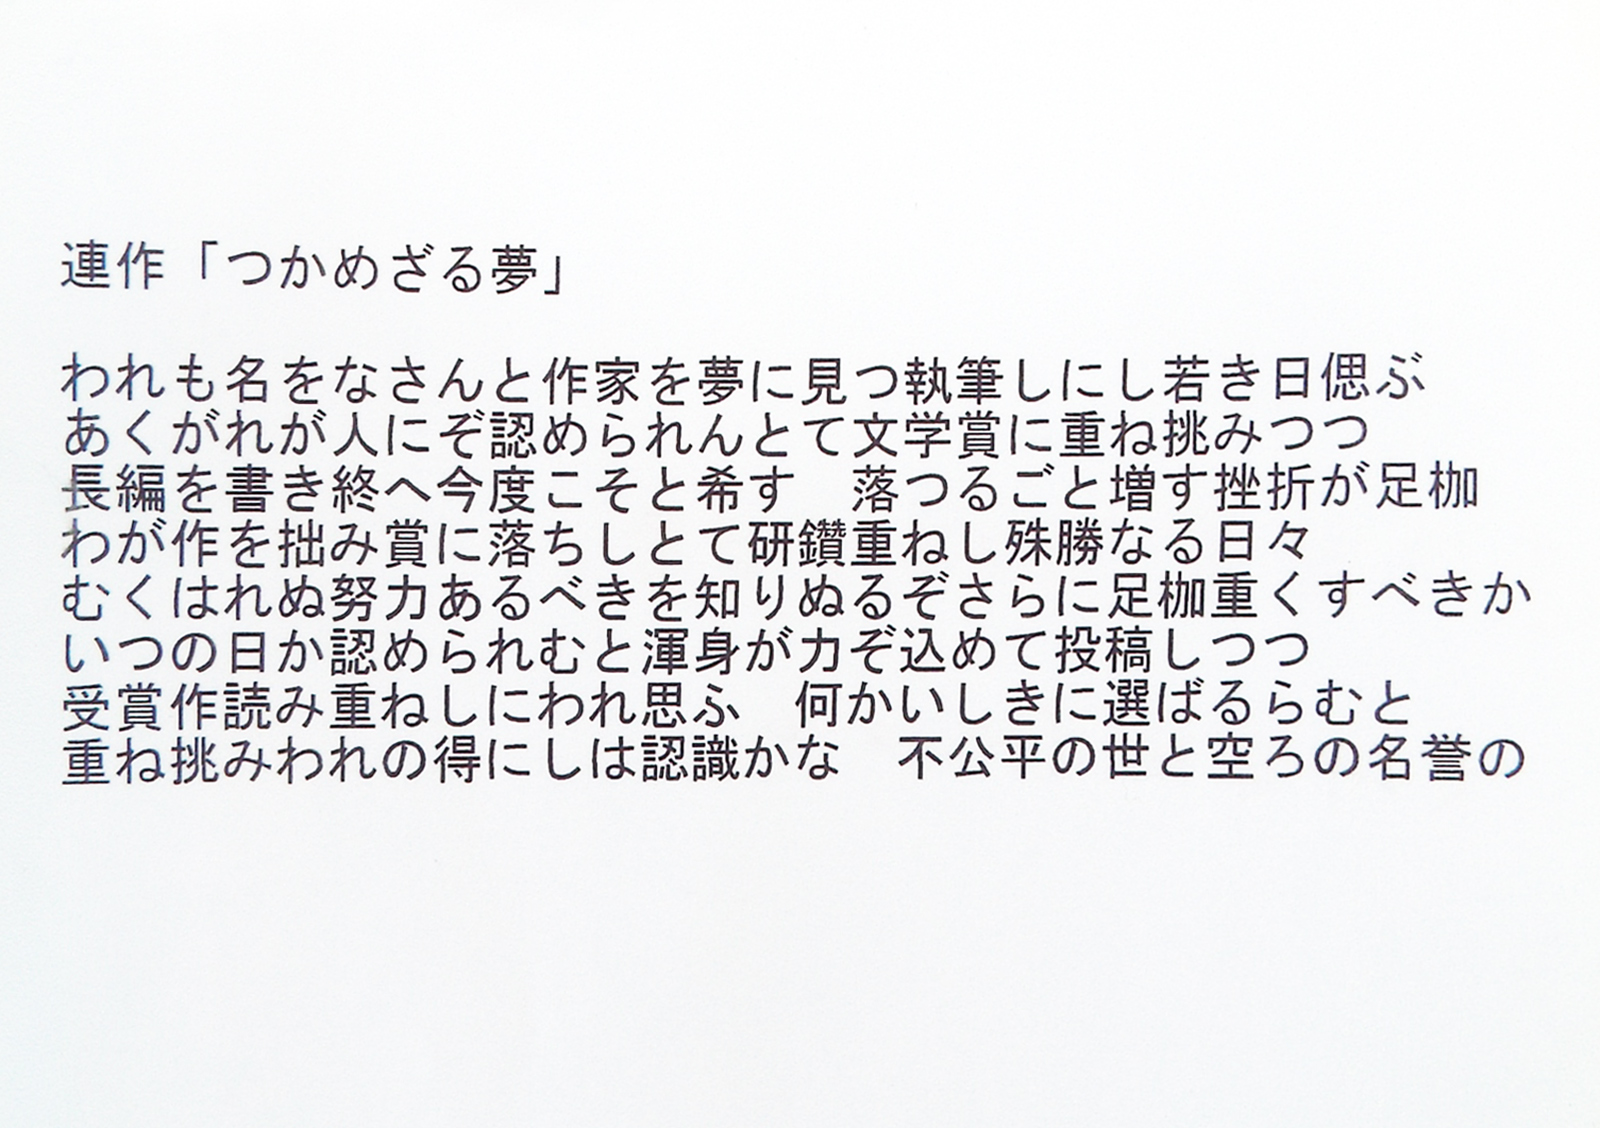 連作「つかめざる夢」
われも名をなさんと作家を夢に見つ執筆しにし若き日偲ぶ
あくがれが人にぞ認められんとて文学賞に重ね挑みつつ
長編を書き終へ今度こそと希す　落つるごと増す挫折が足枷
わが作を拙み賞に落ちしとて研鑽重ねし殊勝なる日々
むくはれぬ努力あるべきを知りぬるぞさらに足枷重くすべきか
いつの日か認められむと渾身が力ぞ込めて投稿しつつ
受賞作読み重ねしにわれ思ふ　何かいしきに選ばるらむと
重ね挑みわれの得にしは認識かな　不公平の世と空ろの名誉の